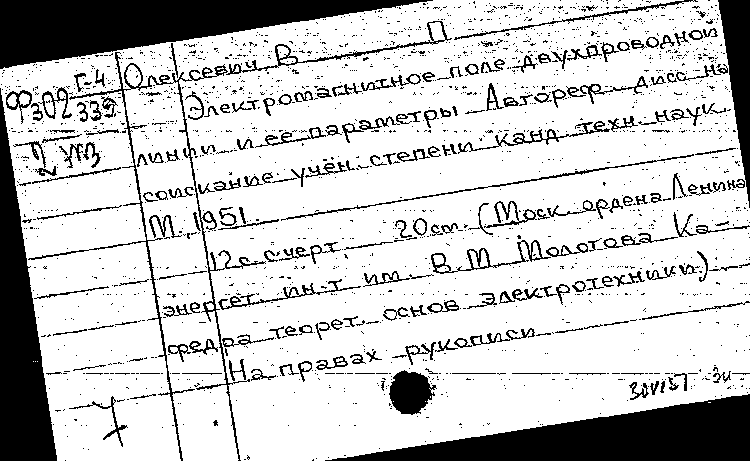 Олексевич В П
Г-4
Ф302 339
2 экз
Электромагнитное поле двухпроводной
линии и ее параметры Автореф дисс на
соискание учен. степени канд техн наук.
М., 1951.
12с. с черт. 20см. (Моск ордена Ленина
энергет. ин-т им. В.М. Молотова Ка-
федра теорет. основ электротехники)
На правах рукописи